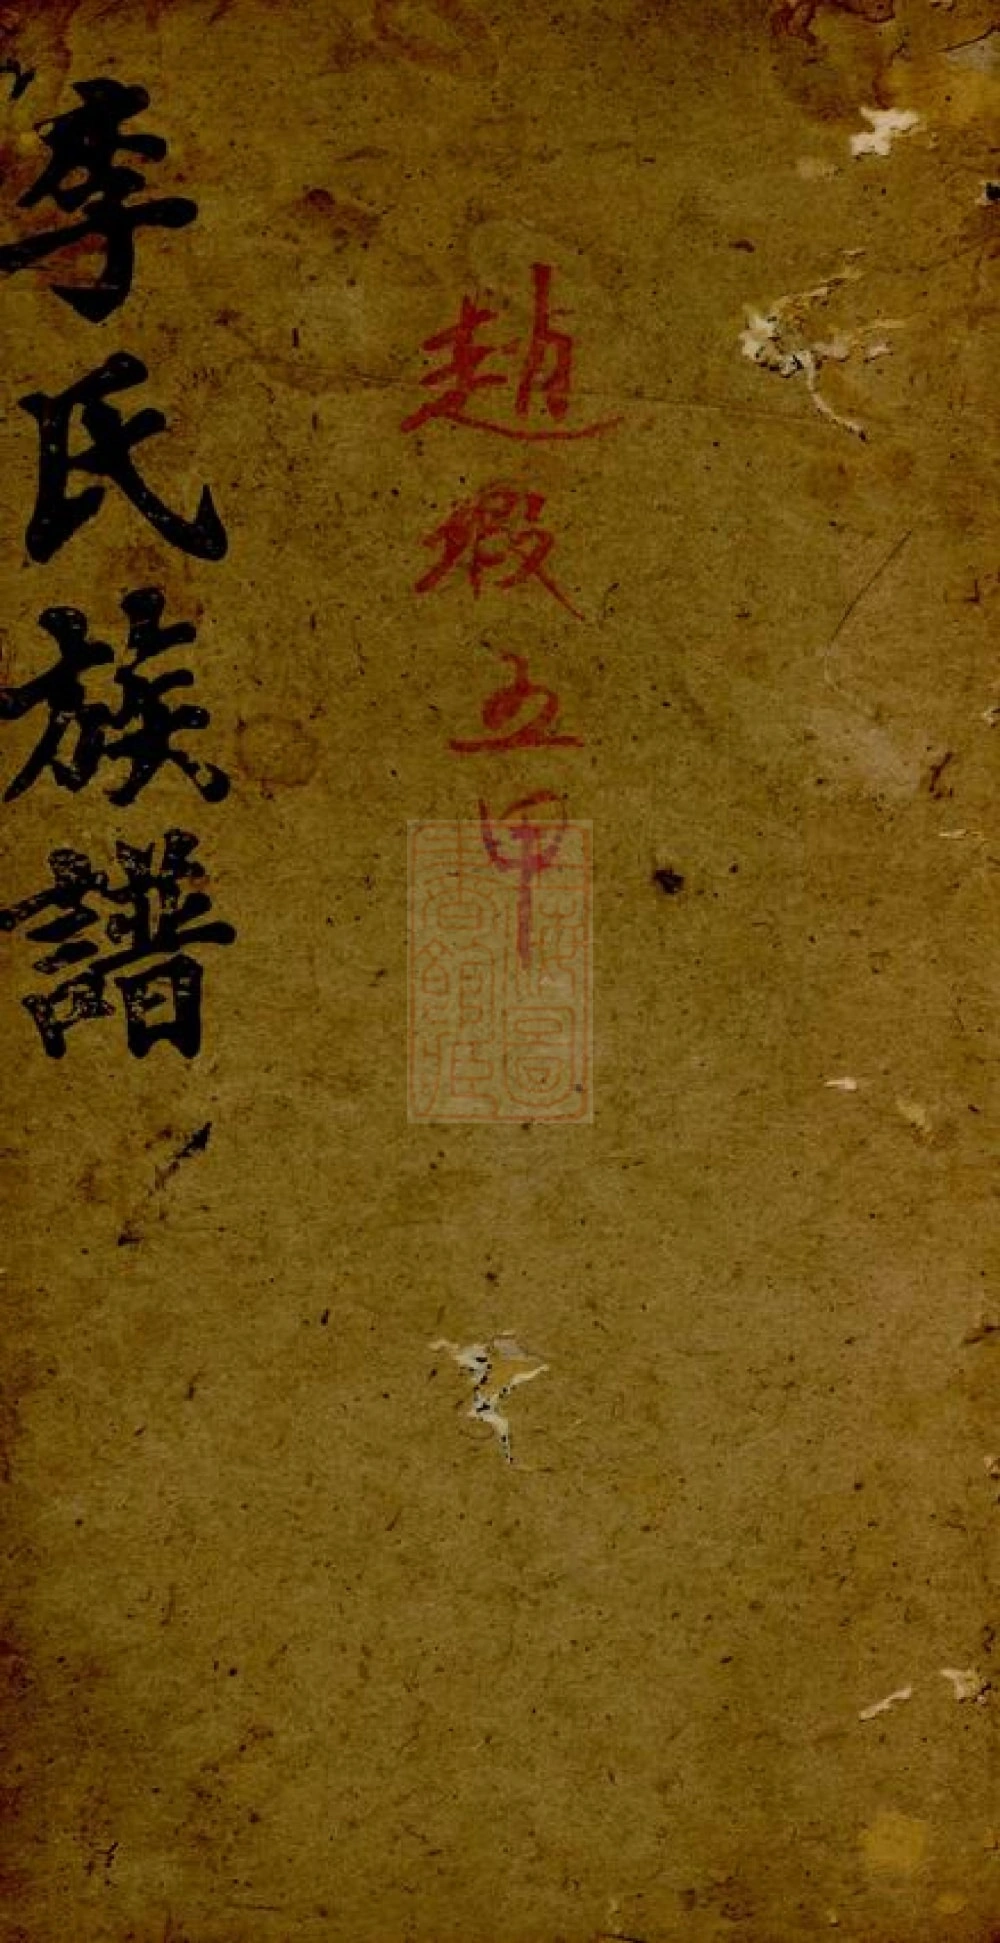 趙瑕五甲
李氏族譜